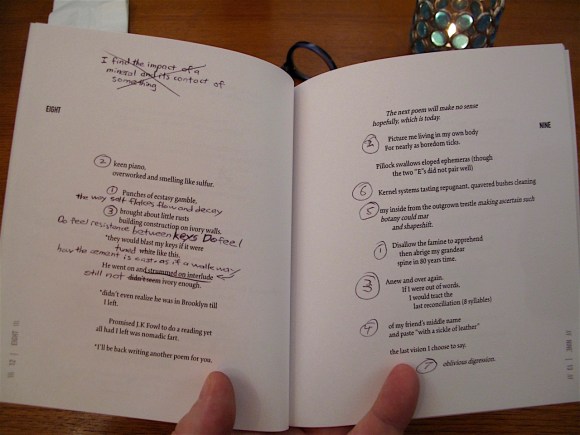 I find the impact of a
mineral and its contact of
something
EIGHT
② keen piano,
overworked and smelling like sulfur.
① Punches of ecstasy gamble,
the way salt flakes flow and decay
③ brought about little rusts
building construction on ivory walls.
Do feel resistance between keys Do feel
*they would blast my keys if it were
tuned white like this.
how the cement is cast as if a walkway
He went on and strummed on interlude
still not didn't seem ivory enough.
*didn't even realize he was in Brooklyn till
I left.
Promised J.K Fowl to do a reading yet
all had I left was nomadic fart.
*I'll be back writing another poem for you.
The next poem will make no sense
hopefully, which is today.
NINE
② Picture me living in my own body
For nearly as boredom ticks.
Pillock swallows eloped ephemeras (though
the two "E"s did not pair well)
⑥ Kernel systems tasting repugnant, quavered hushes cleaning
⑤ my inside from the outgrown trestle making ascertain such
botany could mar
and shapeshift.
① Disallow the famine to apprehend
then abrige my grandeur
spine in 80 years time.
③ Anew and over again.
If I were out of words,
I would tract the
last reconciliation (8 syllables)
④ of my friend's middle name
and paste "with a sickle of leather"
the last vision I choose to say.
⑦ oblivious digression.